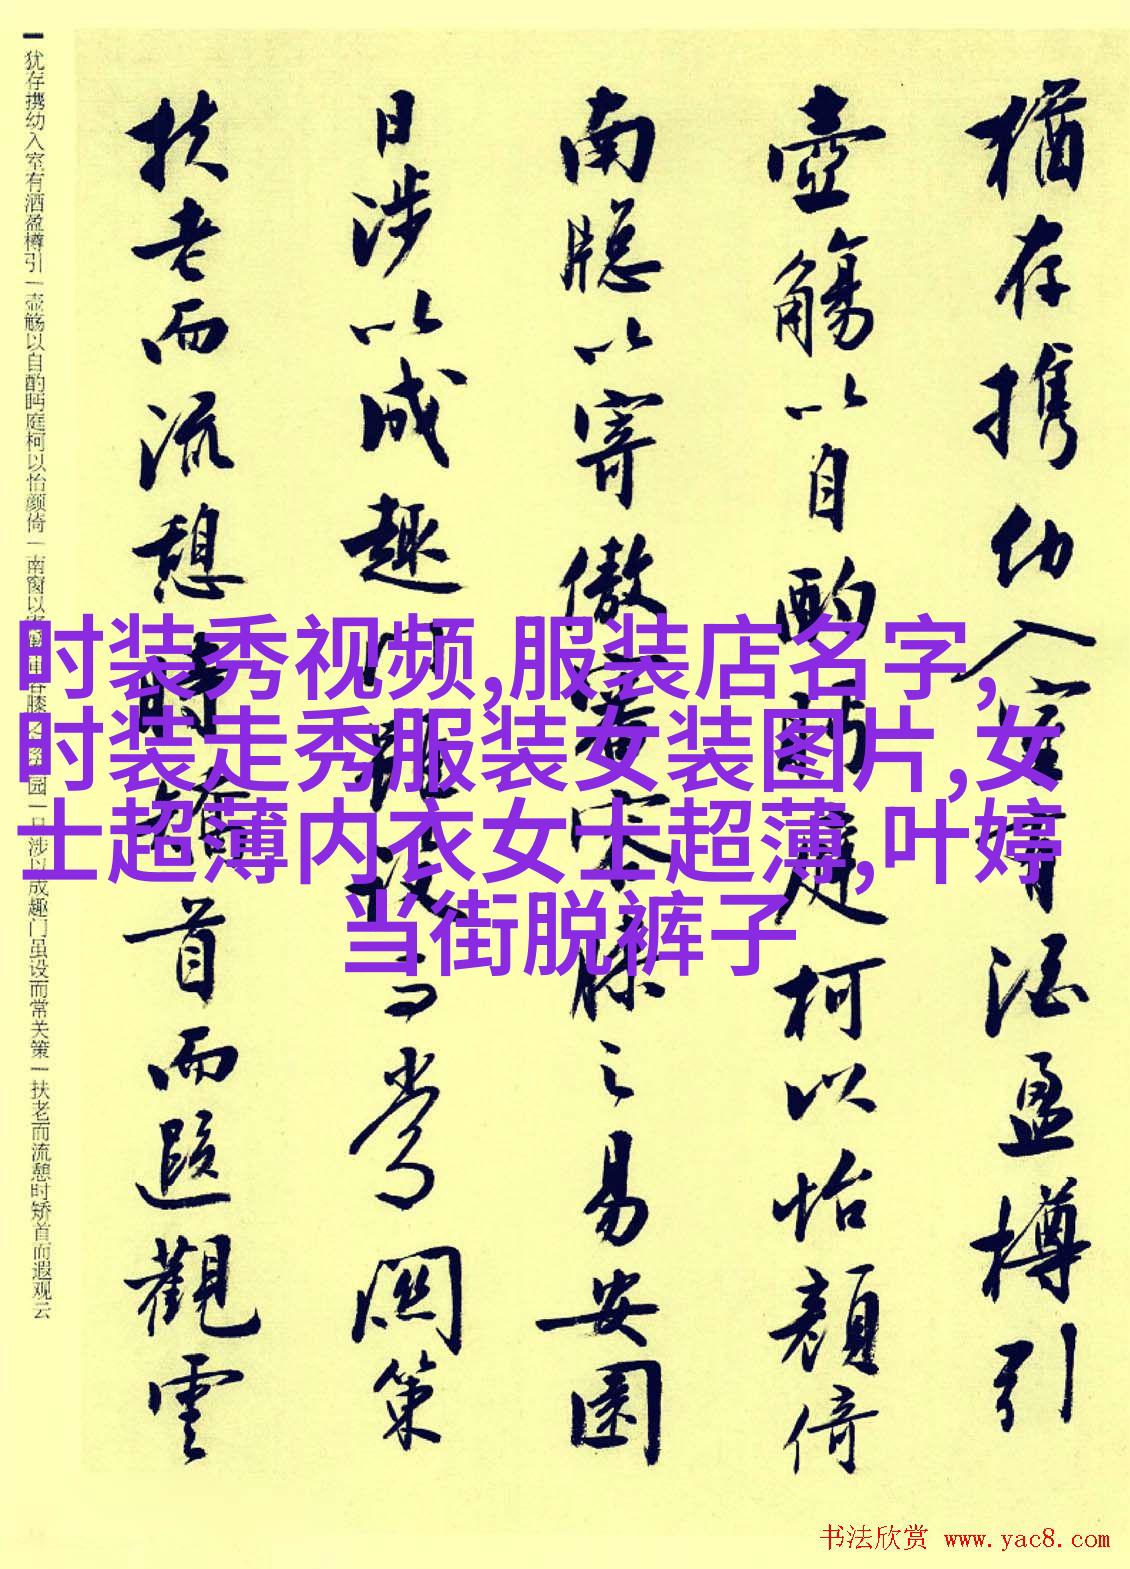 犹存携幼入室有洒盈樽引一壶觞以自酌眄庭柯以怡颜倚一南窗以
园一日涉以成趣门虽设而常关策一扶老而流憩时矫首而遐观云
猶存携幼入室有酒盈樽引
壺觴以自酌眄庭柯以怡顔倚
南牕以寄傲審容膝之易安園
日涉以成趣門雖設而常関策
扶老而流憩時矯首而遐觀雲
时装秀视频,服装店名字,
时装走秀服装女装图片,女
士超薄内衣女士超薄,叶婷
当街脱裤子
书法欣赏 www.yac8.com